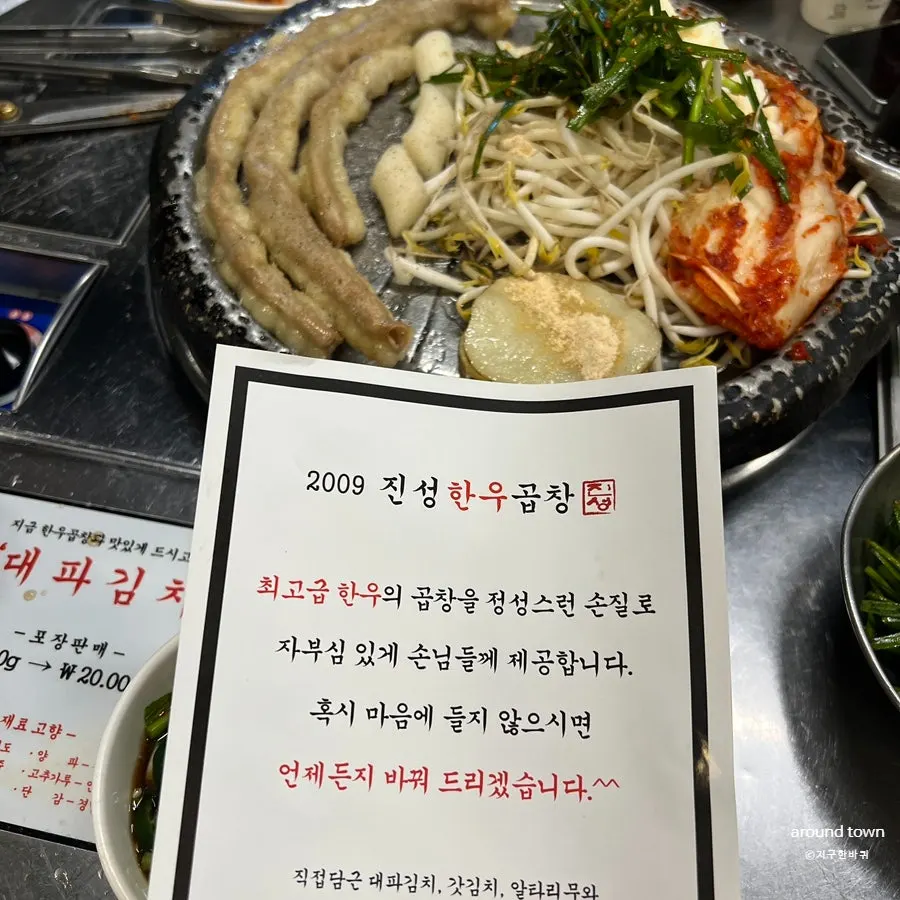 2009 진성한우곱창 진성
최고급 한우의 곱창을 정성스런 손질로
자부심 있게 손님들께 제공합니다.
혹시 마음에 들지 않으시면
언제든지 바꿔 드리겠습니다.^^
직접담근 대파김치, 갓김치, 알타리무와
지금 한우곱창과 맛있게 드시고
대파김치
-포장판매-
0g → ₩20.00
재료고향-
·양 파-
·고추가루-
·단 감-경
around town
©지구한바퀴